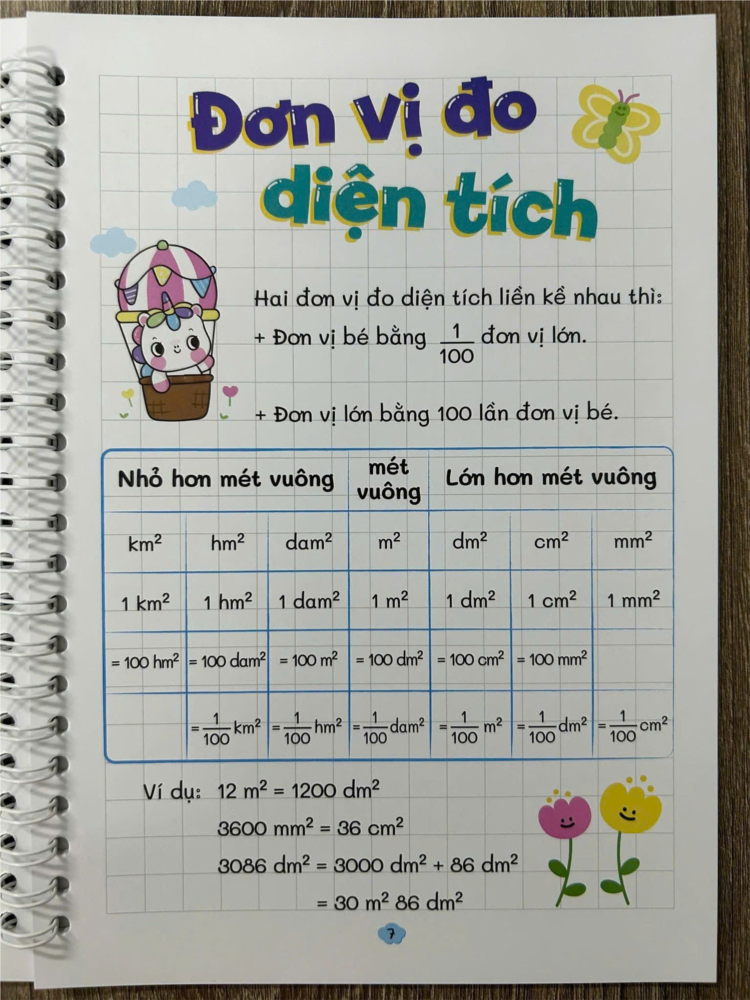 Đơn vị đo
diện tích
Hai đơn vị đo diện tích liền kề nhau thì:
+ Đơn vị bé bằng 1/100 đơn vị lớn.
+ Đơn vị lớn bằng 100 lần đơn vị bé.
Nhỏ hơn mét vuông mét vuông Lớn hơn mét vuông
km² hm² dam² m² dm² cm² mm²
1 km² 1 hm² 1 dam² 1 m² 1 dm² 1 cm² 1 mm²
= 100 hm² = 100 dam² = 100 m² = 100 dm² = 100 cm² = 100 mm²
= 1/100 km² = 1/100 hm² = 1/100 dam² = 1/100 m² = 1/100 dm² = 1/100 cm²
Ví dụ: 12 m² = 1200 dm²
3600 mm² = 36 cm²
3086 dm² = 3000 dm² + 86 dm²
= 30 m² 86 dm²
7